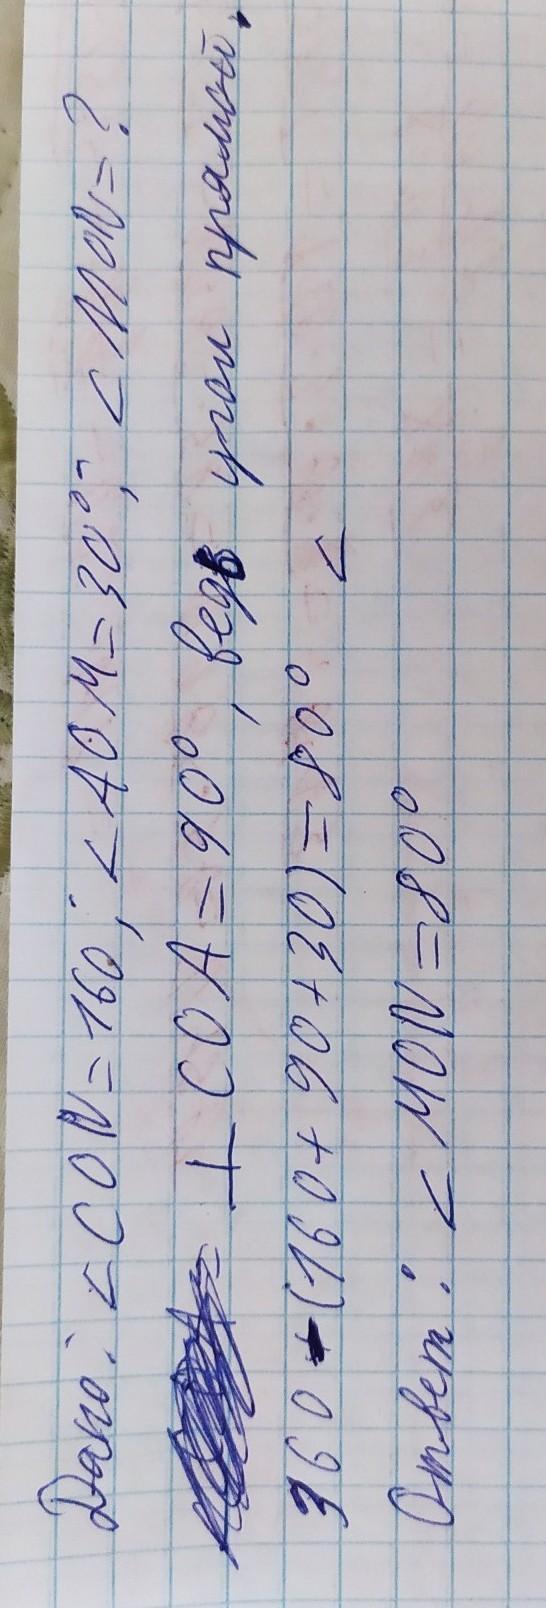 Дано: <CON=160; <AOM=30°; <MON=?
⊥ COA=90°, ведь угол прямой.
360-(160+90+30)=80° <
Ответ: <MON=80°